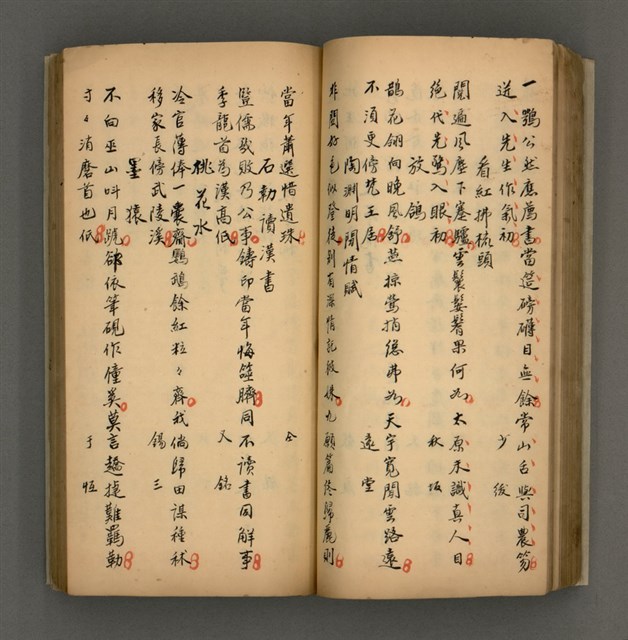 一鶚公然應薦書當筵磅礴目無餘常山舌與司農笏
逆入先生作氣初 少緩
看紅拂梳頭
閱遍風塵下塞驢雲鬟鬖髿果何如太原未識真人目
絕代先驚入眼初 秋坂
放鴿
鵲花翎向晚風舒燕掠鶯捎總弗如天宇寬閒雲路遠
不須更傍梵王居 遠堂
陶淵明閒情賦
非關好色似登後別有深情託被姝九願篇終歸麗則
當年蕭選惜遺珠 仝
石勒讀漢書
豎儒幾敗乃公事鑄印當年悔噬臍同不讀書同解事
季龍首為漢高低 又銘
桃花水
冷官薄俸一囊齋鸚鵡餘紅粒々齊我倘歸田謀種秫
移家長傍武陵溪 錫三
墨猿
不向巫山叫月號欲依筆硯作僮奚莫言趫捷難羈勒
寸々消磨首也低 于恒